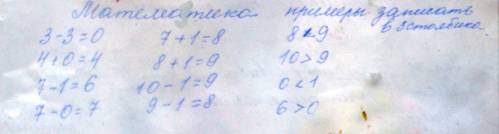 Математика примеры записать
в 3 столбика.
3-3=0 7+1=8 8<9
4+0=4 8+1=9 10>9
7-1=6 10-1=9 0<1
7-0=7 9-1=8 6>0